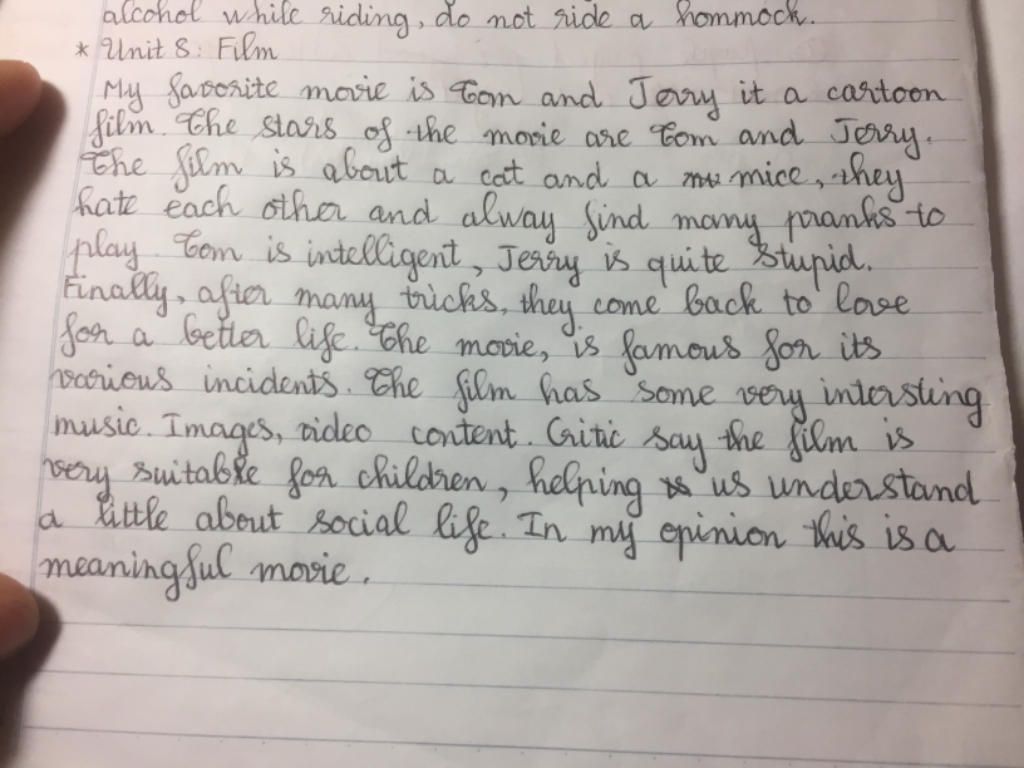 alcohol while riding, do not ride a hommock.
* Unit 8: Film
My favorite movie is Tom and Jerry it a cartoon
film. The stars of the movie are Tom and Jerry.
The film is about a cat and a mice, they
hate each other and alway find many pranks to
play. Tom is intelligent, Jerry is quite stupid.
Finally, after many tricks, they come back to love
for a better life. The movie, is famous for its
various incidents. The film has some very intersting
music. Images, video content. Critic say the film is
very suitable for children, helping us understand
a little about social life. In my opinion this is a
meaningful movie.